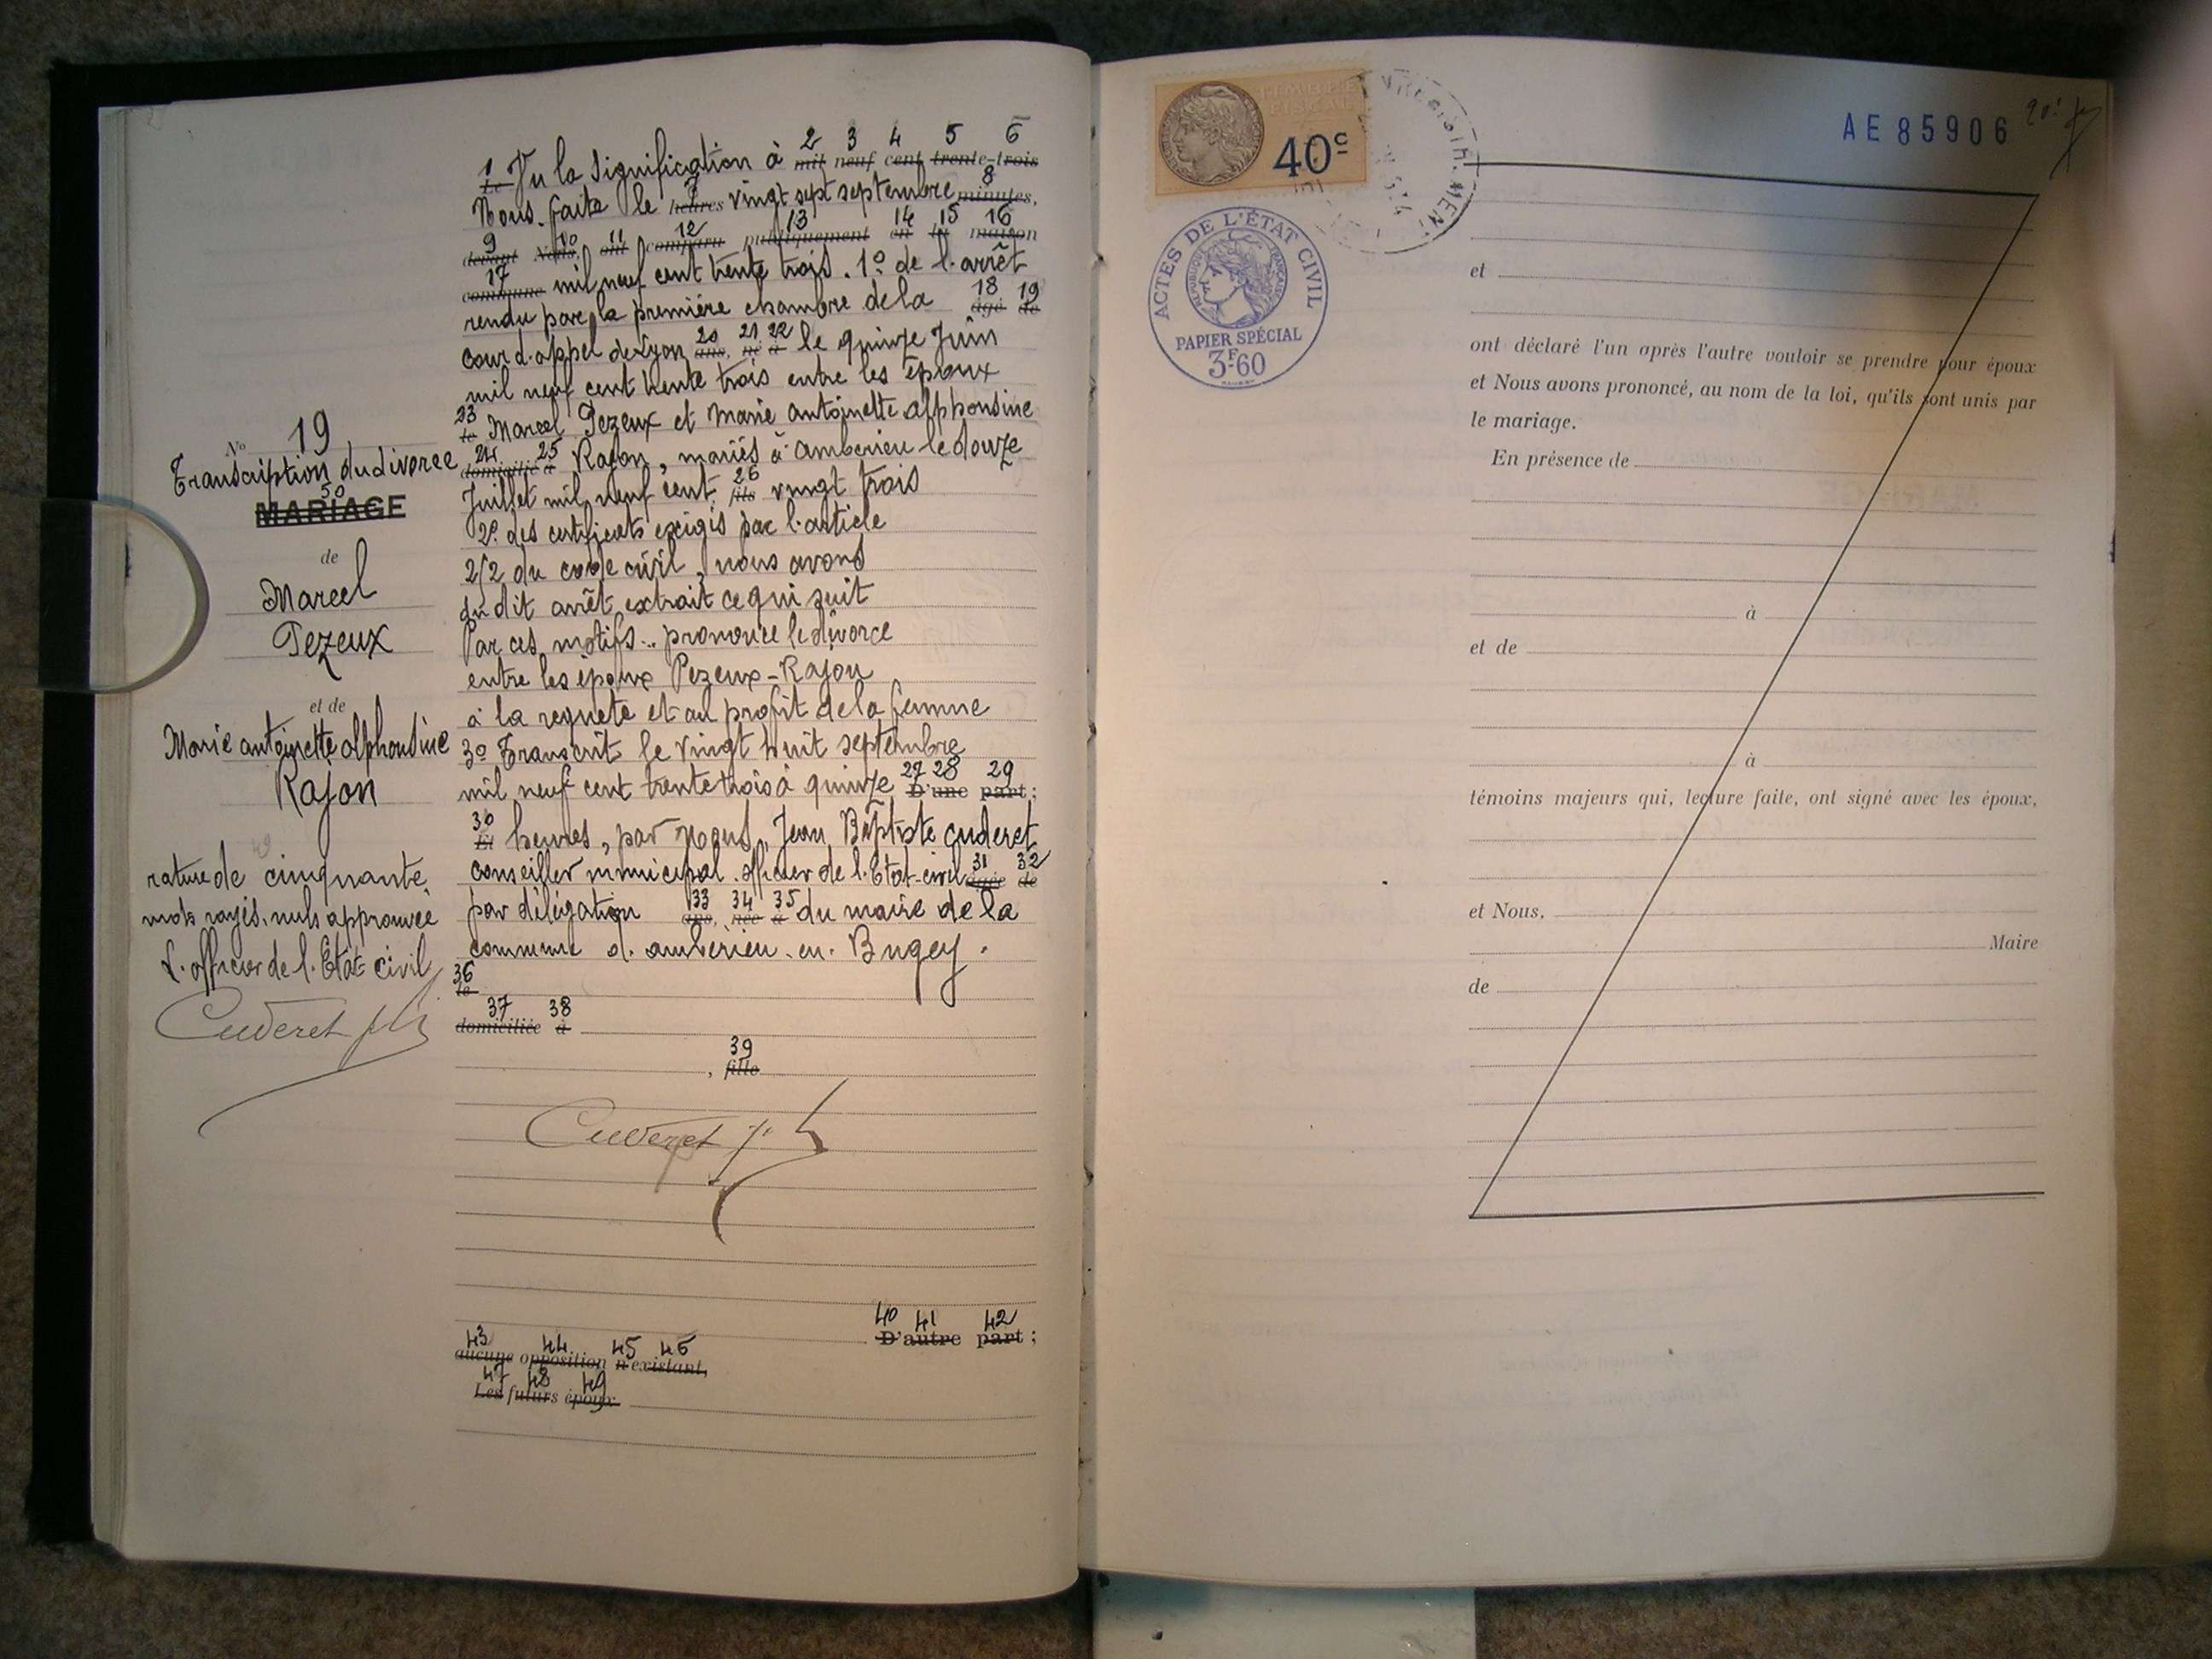 N° 19
Transcription du divorce
50
MARIAGE
de
Marcel
Pezeux
et de
Marie antoinette alphonsine
Rajon
rature de cinquante
mots rayés nuls approuvée
L'officier de l'Etat civil
Cuderet
1 2 3 4 5 6
Le Vu la Signification à mil neuf cent trente-trois
7 8
Nous. faite le heures vingt sept septembre minutes,
9 10 11 12 13 14 15 16
devant Nous, ont comparu publiquement en la maison
17
commune mil neuf cent trente trois. 1° de l'arrêt
18 19
rendu par la première chambre de la âgé de
20 21 22
cour d'appel de Lyon ans, né à le quinze Juin
mil neuf cent trente trois entre les époux
23
le Marcel Pezeux et Marie antoinette alphonsine
24 25
domicilié à Rajon, mariés à amberieu le douze
26
Juillet mil neuf cent, fils vingt trois
2° des certificats exigés par l'article
252 du code civil, nous avons
du dit arrêt extrait ce qui suit
Par ces motifs.. prononce le divorce
entre les époux Pezeux-Rajon
à la requete et au profit de la femme
3° Transcrit le vingt huit septembre
27 28 29
mil neuf cent trente trois à quinze D'une part;
30
Et heures, par nous, Jean Baptiste Cuderet
31 32
conseiller municipal. officier de l'Etat-civil âgée de
33 34 35
par délégation ans, née à du maire de la
commune d'amberieu. en. Bugey.
36
le
37 38
domiciliée à
39
, fille
Cuderet
40 41 42
D'autre part;
43 44 45 46
aucune opposition n'existant,
47 48 49
Les futurs époux
TIMBRE
FISCAL
40c
AE 85906
ACTES DE L'ÉTAT CIVIL
RÉPUBLIQUE FRANÇAISE
PAPIER SPÉCIAL
3F60
et
ont déclaré l'un après l'autre vouloir se prendre pour époux
et Nous avons prononcé, au nom de la loi, qu'ils sont unis par
le mariage.
En présence de
à
et de
à
témoins majeurs qui, lecture faite, ont signé avec les époux,
et Nous,
Maire
de